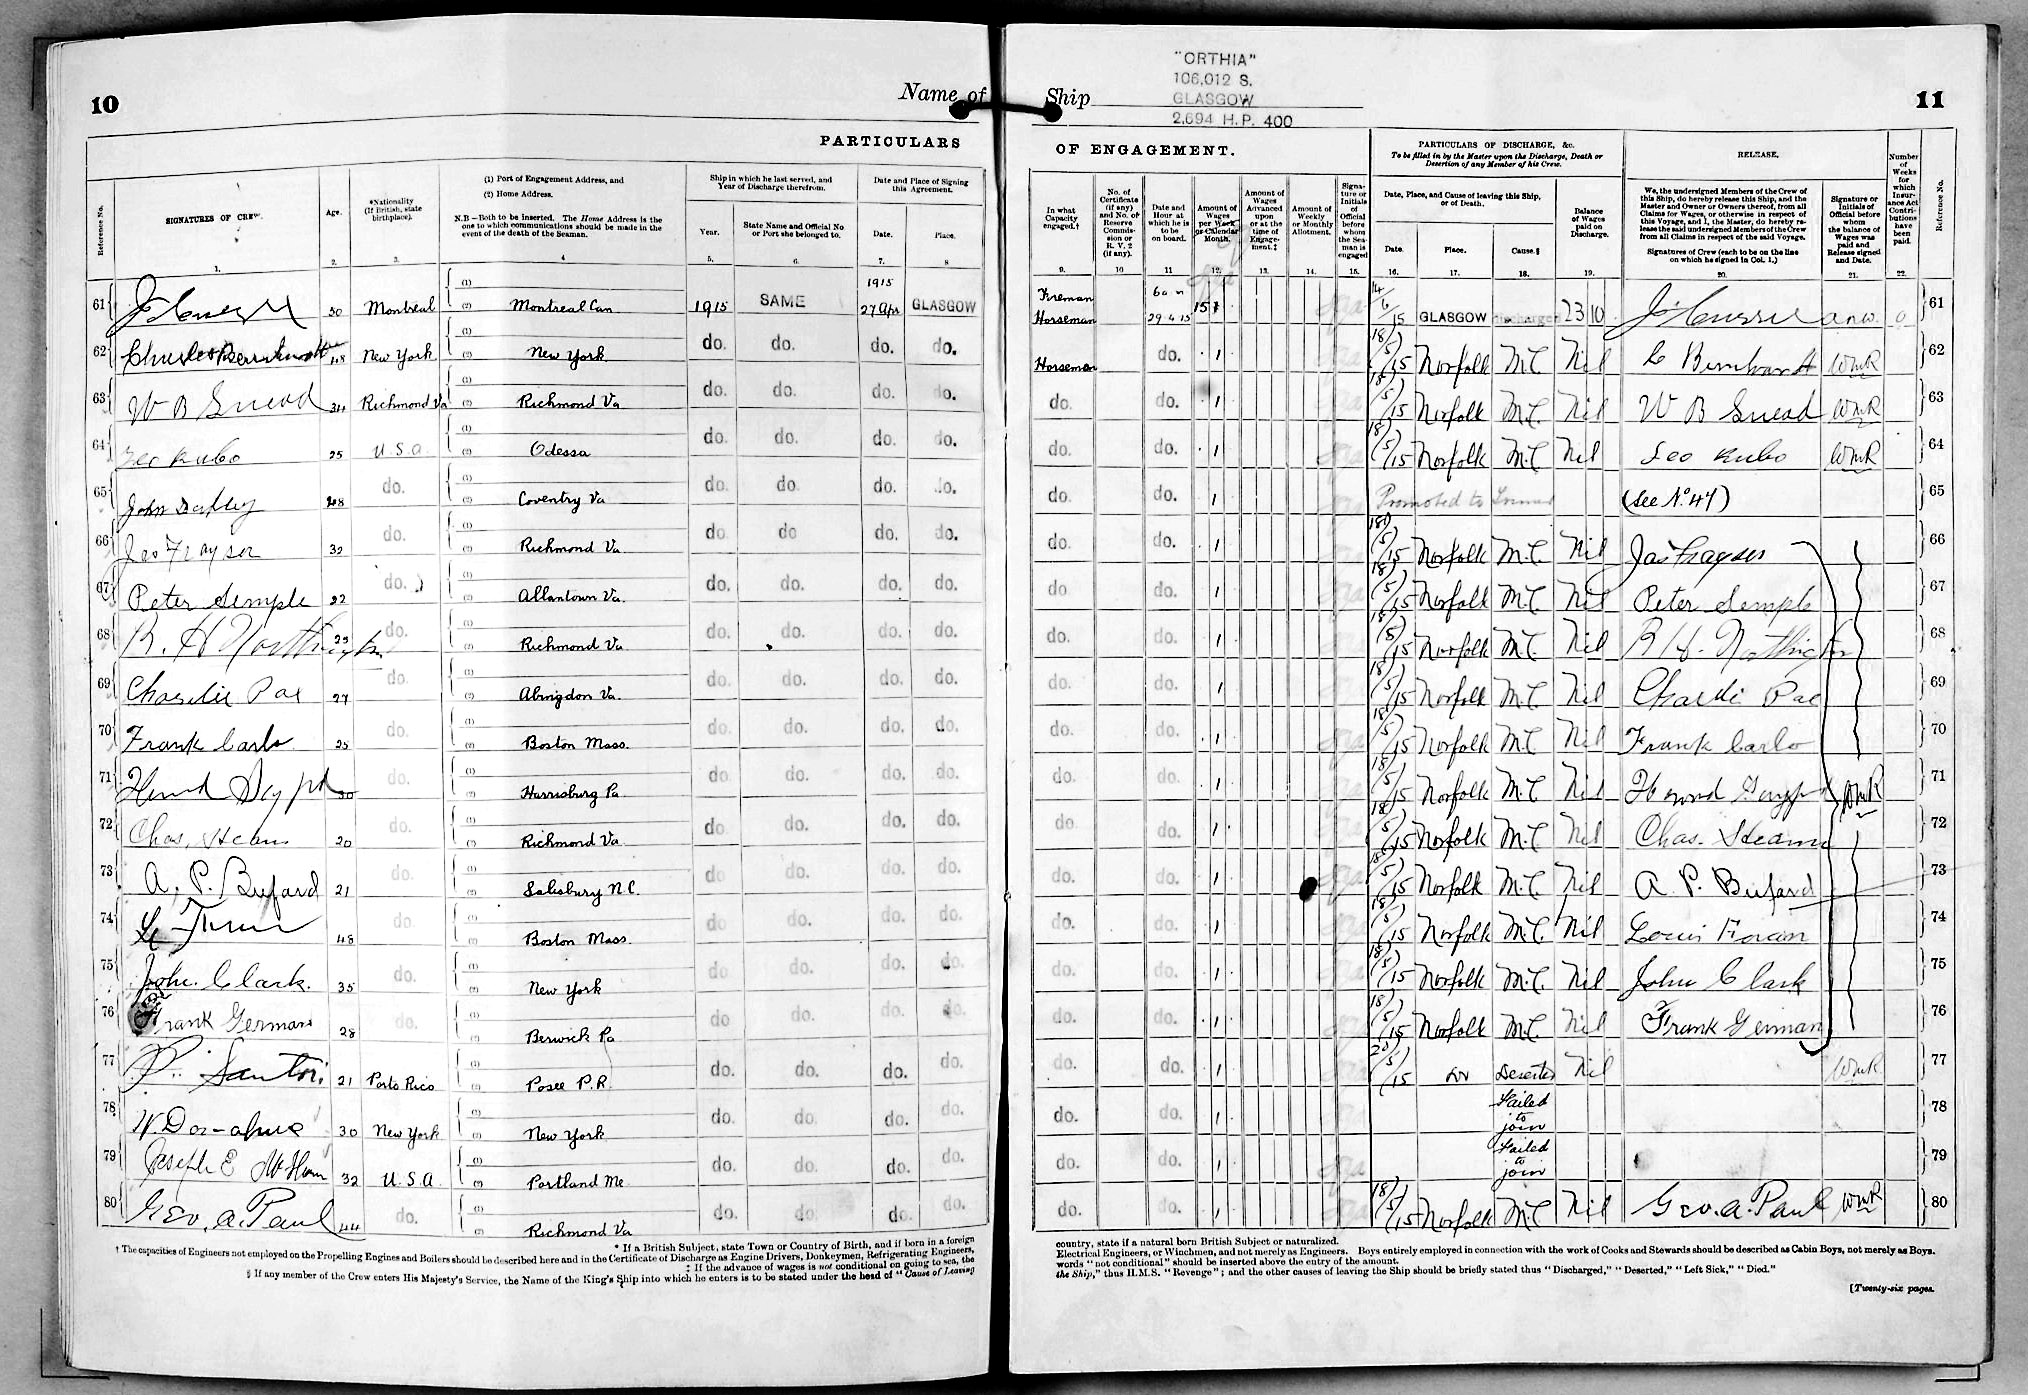 10
Name of
PARTICULARS
Reference No.
SIGNATURES OF CREW.
Age.
*Nationality (If British, state birthplace).
(1) Port of Engagement Address, and
(2) Home Address.
N.B—Both to be inserted. The Home Address is the one to which communications should be made in the event of the death of the Seaman.
Ship in which he last served, and Year of Discharge therefrom.
Year.
State Name and Official No or Port she belonged to.
Date and Place of Signing this Agreement.
Date.
Place.
1. 2. 3. 4 5. 6. 7. 8
61 30 Montreal (1) (2) Montreal Can 1915 SAME 1915 27 Apr GLASGOW
62 48 New York (1) (2) New York do. do. do. do.
63 W B Snead 34 Richmond Va (1) (2) Richmond Va do. do. do. do.
64 Leo Kubo 25 U.S.A. (1) (2) Odessa do. do. do. do.
65 John 28 do. (1) (2) Coventry Va do. do. do. do.
66 Jas Frayser 32 do. (1) (2) Richmond Va do. do do. do.
67 Peter Semple 22 do. (1) (2) Allantown Va. do. do. do. do.
68 R. H Northington 25 do. (1) (2) Richmond Va do. do. do. do.
69 Charlie Pae 27 do. (1) (2) Abingdon Va. do. do. do. do.
70 Frank Carlo 25 do. (1) (2) Boston Mass. do. do. do. do.
71 30 do. (1) (2) Harrisburg Pa do. do. do. do.
72 Chas. Hearn 20 do. (1) (2) Richmond Va do do. do. do.
73 A. P. Bufard 21 do. (1) (2) Salisbury N.C. do do. do. do.
74 48 do. (1) (2) Boston Mass. do do. do. do.
75 John Clark. 35 do. (1) (2) New York do do. do. do.
76 Frank German 28 do. (1) (2) Berwick Pa do do. do. do.
77 P. Santori 21 Porto Rico (1) (2) Posee P.R. do. do. do. do.
78 W. Donahue 30 New York (1) (2) New York do. do. do. do.
79 Joseph E 32 U.S.A. (1) (2) Portland Me do. do. do. do.
80 Geo. A. Paul 44 do. (1) (2) Richmond Va do. do. do. do.
* If a British Subject, state Town or Country of Birth, and if born in a foreign
† The capacities of Engineers not employed on the Propelling Engines and Boilers should be described here and in the Certificate of Discharge as Engine Drivers, Donkeymen, Refrigerating Engineers,
‡ If the advance of wages is not conditional on going to sea, the
§ If any member of the Crew enters His Majesty's Service, the Name of the King's Ship into which he enters is to be stated under the head of "Cause of Leaving
"ORTHIA"
106,012 S.
Ship GLASGOW
2,694 H.P. 400
11
OF ENGAGEMENT.
PARTICULARS OF DISCHARGE, &c.
To be filled in by the Master upon the Discharge, Death or Desertion of any Member of his Crew.
RELEASE.
In what Capacity engaged.†
No. of Certificate (if any) and No. of Reserve Commission or R. V. 2 (if any).
Date and Hour at which he is to be on board.
Amount of Wages per Week or Calendar Month.
Amount of Wages Advanced upon or at the time of Engagement.‡
Amount of Weekly or Monthly Allotment.
Signature or Initials of Official before whom the Seaman is engaged
Date, Place, and Cause of leaving this Ship, or of Death.
Date.
Place.
Cause.§
Balance of Wages paid on Discharge.
We, the undersigned Members of the Crew of this Ship, do hereby release this Ship, and the Master and Owner or Owners thereof, from all Claims for Wages, or otherwise in respect of this Voyage, and I, the Master, do hereby release the said undersigned Members of the Crew from all Claims in respect of the said Voyage.
Signatures of Crew (each to be on the line on which he signed in Col. 1.)
Signature or Initials of Official before whom the balance of Wages was paid and Release signed and Date.
Number of Weeks for which Insurance Act Contributions have been paid.
Reference No.
9. 10 11 12. 13. 14. 15. 16. 17. 18. 19. 20. 21. 22.
Fireman Horseman 6 a m 29.4.15 15 14/6/15 GLASGOW discharged 23 10 0 61
Horseman do. 1 18/5/15 Norfolk M.C. Nil C Bernhardt WmR 62
do. do. 1 18/5/15 Norfolk M.C. Nil W B Snead WmR 63
do. do. 1 18/5/15 Norfolk M.C. Nil Leo Kubo WmR 64
do. do. 1 Promoted to (See No. 47) 65
do. do. 1 18/5/15 Norfolk M.C. Nil Jas Frayser 66
do do. 1 18/5/15 Norfolk M.C. Nil Peter Semple 67
do. do. 1 18/5/15 Norfolk M.C. Nil R H. Northington 68
do. do. 1 18/5/15 Norfolk M.C. Nil Charlie Pae 69
do. do. 1 18/5/15 Norfolk M.C. Nil Frank Carlo 70
do. do. 1 18/5/15 Norfolk M.C. Nil WmR 71
do. do. 1 18/5/15 Norfolk M.C. Nil Chas. Hearn 72
do. do. 1 18/5/15 Norfolk M.C. Nil A. P. Bufard 73
do. do. 1 18/5/15 Norfolk M.C. Nil Louis Foran 74
do. do. 1 18/5/15 Norfolk M.C. Nil John Clark 75
do. do. 1 18/5/15 Norfolk M.C. Nil Frank German 76
do. do. 1 20/5/15 do Deserted Nil WmR 77
do. do. 1 Failed to join 78
do. do. 1 Failed to join 79
do. do. 1 18/5/15 Norfolk M.C. Nil Geo. A. Paul WmR 80
country, state if a natural born British Subject or naturalized.
Electrical Engineers, or Winchmen, and not merely as Engineers. Boys entirely employed in connection with the work of Cooks and Stewards should be described as Cabin Boys, not merely as Boys.
words "not conditional" should be inserted above the entry of the amount.
the Ship," thus H.M.S. "Revenge"; and the other causes of leaving the Ship should be briefly stated thus "Discharged," "Deserted," "Left Sick," "Died."
[Twenty-six pages.